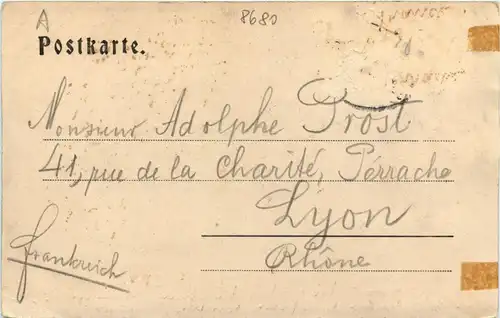 A
8680
Postkarte.
Monsieur Adolphe Prost
41, rue de la Charité, Perrache
Lyon
Rhône
Frankreich